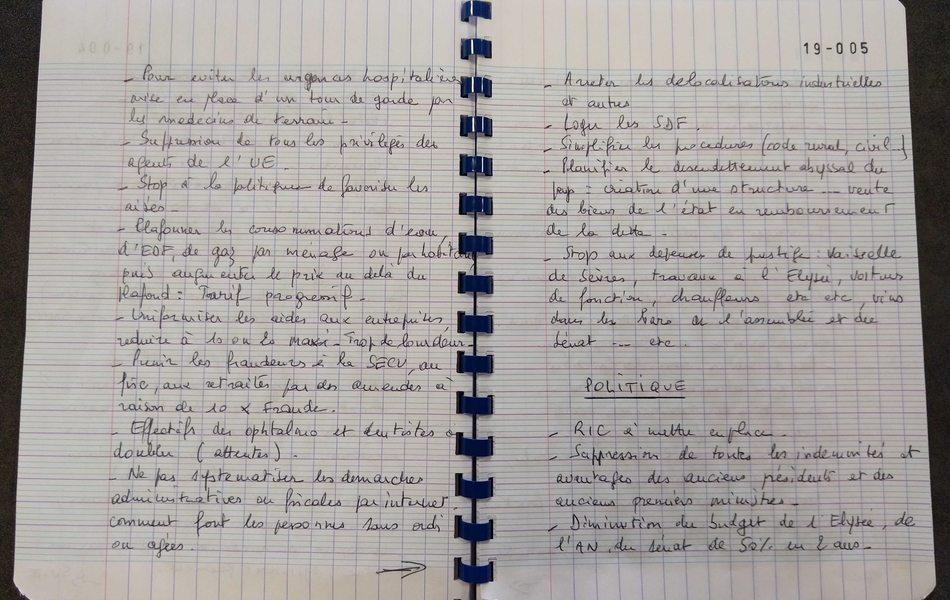 - Pour eviter les urgences hospitalières
mise en place d'un tour de garde par
les medecins de terrain -
- Suppression de tous les privilèges des
agents de l'UE
- Stop à la politique de favoriser les
aisés -
- Plafonner les consommations d'eau,
d'EDF, de gaz par ménage ou par habitant
puis augmenter le prix au delà du
plafond : Tarif progressif -
- Uniformiser les aides aux entreprises,
reduire à 10 ou 20 maxi - Trop de lourdeur -
- Punir les fraudeurs à la SECU, au
fisc, aux retraites par des amendes à
raison de 10 x Fraude.
- Effectifs des ophtalmo et dentistes à
doubler (attentes).
- Ne pas systematiser les demarches
administratives ou fiscales par internet
comment font les personnes sans ordi
ou agées.
19-005
- Arreter les delocalisations industrielles
et autres
- Loger les SDF.
- Simplifier les procedures (code rural, civil...)
- Planifier le desendettement abyssal du
pays : création d'une structure --- vente
des biens de l'état en remboursement
de la dette -
- Stop aux depenses de prestige : vaisselle
de Sèvres, travaux à l'Elysée, voitures
de fonction, chauffeurs etc etc, vins
dans les bars de l'assemblée et du
Sénat --- etc.
POLITIQUE
- RIC à mettre en place -
- Suppression de toutes les indemnités et
avantages des anciens présidents et des
anciens premiers ministres -
- Diminution du budget de l'Elysée, de
l'AN, du sénat de 50% en 2 ans -